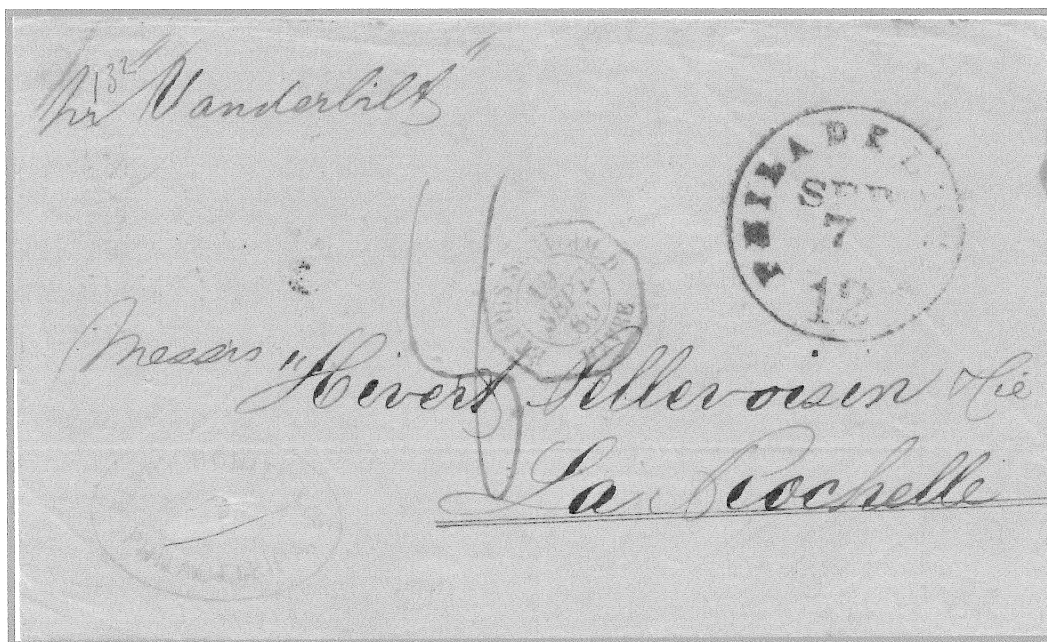 132
Pr "Vanderbilt"
PHILADEL
SEP
7
12
19
SEPT
60
HAVRE
Messrs Hivert Pellevoisin & Cie
La Rochelle
PHILADELPHIA